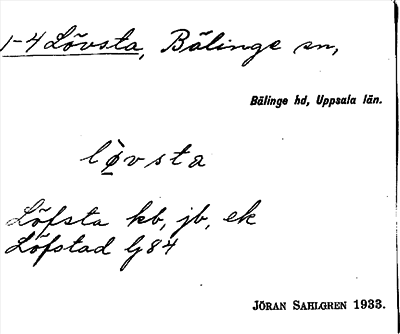 1-4 Lövsta, Bälinge sn,
Bälinge hd, Uppsala län.
lø̀vsta
Löfsta kb, jb, ek
Löfstad lj 84
JÖRAN SAHLGREN 1933.